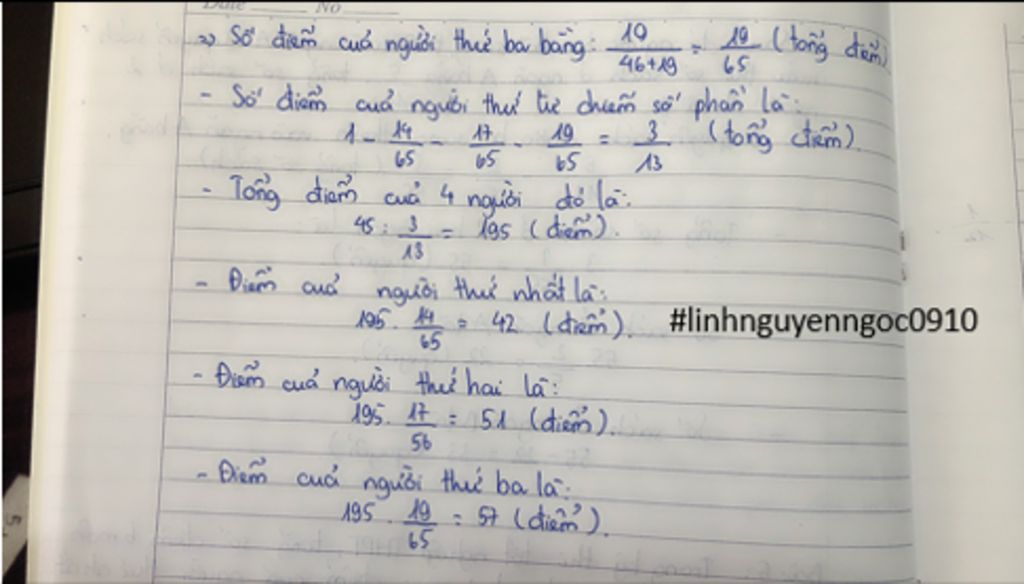 Date No
=> Số điểm cuả người thứ ba bằng: 19/(46+19) = 19/65 (tổng điểm)
- Số điểm cuả người thứ tư chiếm số phần là:
1 - 14/65 - 17/65 - 19/65 = 3/13 (tổng điểm)
- Tổng điểm cuả 4 người đó là:
45 : 3/13 = 195 (điểm).
- Điểm cuả người thứ nhất là:
195 . 14/65 = 42 (điểm).
#linhnguyenngoc0910
- Điểm cuả người thứ hai là:
195 . 17/56 = 51 (điểm).
- Điểm cuả người thứ ba là:
195 . 19/65 = 57 (điểm).